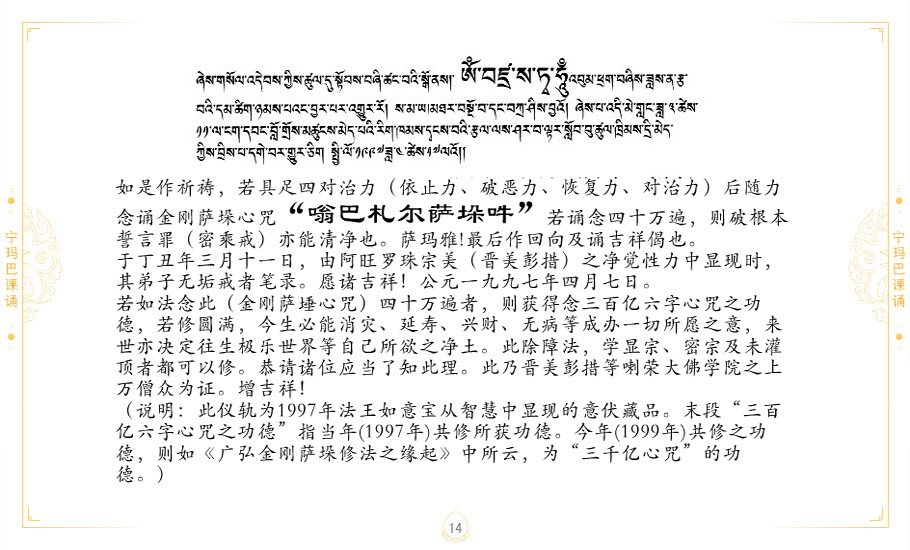 ཞེས་གསོལ་འདེབས་ཀྱིས་ཚུལ་དུ་སྟོབས་བཞི་ཚང་བའི་སྒོ་ནས། ཨོཾ་བཛྲ་ས་ཏྭ་ཧཱུྃ་འབུམ་ཕྲག་བཞིས་ཟླས་ན་རྩ་
བའི་དམ་ཚིག་ཉམས་པའང་བྱར་པར་འགྱུར་རོ། ས་མ་ཡ།མཐར་བསྔོ་བ་དང་བཀྲ་ཤིས་བྱའོ། ཞེས་པ་འདི་མེ་གླང་ཟླ་༣་ཚེས་
༡༡་ལ་ངག་དབང་བློ་གྲོས་མཚུངས་མེད་པའི་རིག་ཁམས་དྭངས་བའི་རྩལ་ལས་ཤར་བ་ལྟར་སློབ་བུ་ཚུལ་ཁྲིམས་དྲི་མེད་
ཀྱིས་བྲིས་པ་དགེ་བར་གྱུར་ཅིག སྤྱི་ལོ་༡༩༩༧ཟླ་༤་ཚེས་༡༧ལའོ།།
如是作祈祷，若具足四对治力（依止力、破恶力、恢复力、对治力）后随力
念诵金刚萨垛心咒“嗡巴札尔萨垛吽”若诵念四十万遍，则破根本
誓言罪（密乘戒）亦能清净也。萨玛雅!最后作回向及诵吉祥偈也。
于丁丑年三月十一日，由阿旺罗珠宗美（晋美彭措）之净觉性力中显现时，
其弟子无垢戒者笔录。愿诸吉祥！公元一九九七年四月七日。
若如法念此（金刚萨埵心咒）四十万遍者，则获得念三百亿六字心咒之功
德，若修圆满，今生必能消灾、延寿、兴财、无病等成办一切所愿之意，来
世亦决定往生极乐世界等自己所欲之净土。此除障法，学显宗、密宗及未灌
顶者都可以修。恭请诸位应当了知此理。此乃晋美彭措等喇荣大佛学院之上
万僧众为证。增吉祥！
（说明：此仪轨为1997年法王如意宝从智慧中显现的意伏藏品。末段“三百
亿六字心咒之功德”指当年(1997年)共修所获功德。今年(1999年)共修之功
德，则如《广弘金刚萨垛修法之缘起》中所云，为“三千亿心咒”的功
德。）
宁玛巴课诵
宁玛巴课诵
14